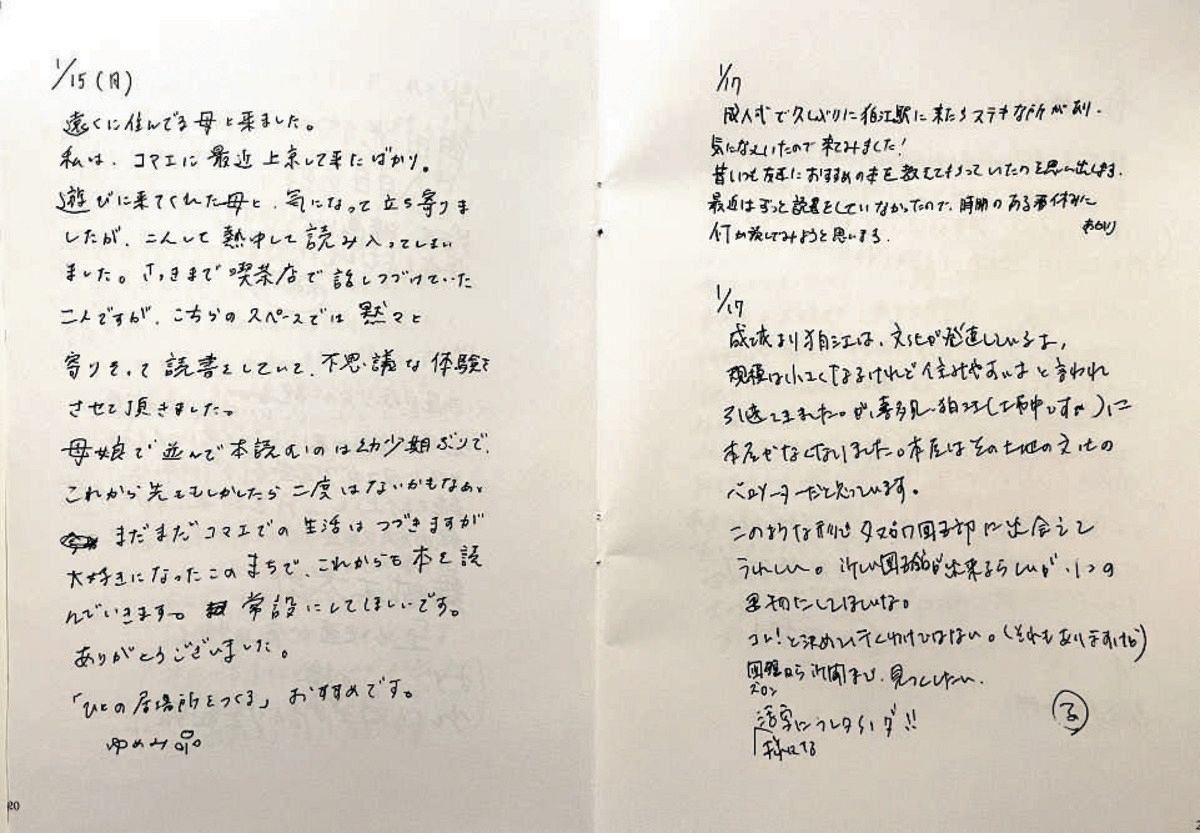 1/15(日)
遠くに住んでる母と来ました。
私は、コマエに最近上京して来たばかり。
遊びに来てくれた母と、気になって立ち寄りま
したが、二人して熱中して読み入ってしまい
ました。さっきまで喫茶店で話しつづけていた
二人ですが、こちらのスペースでは黙々と
寄りそって読書をしていて、不思議な体験を
させて頂きました。
母娘で並んで本読むのは幼少期ぶりで、
これから先ももしかしたら二度はないかもなぁ、
まだまだコマエでの生活はつづきますが
大好きになったこのまちで、これからも本を読
んでいきます。常設にしてほしいです。
ありがとうございました。
「ひとの居場所をつくる」おすすめです。
ゆめみ
20
1/17
成人式で久しぶりに狛江駅に来たらステキな所があり、
気になっていたので来てみました!
昔いつも友達におすすめの本を教えてもらっていたのを思い出します。
最近はずっと読書をしていなかったので、時間のある春休みに
何か読してみようと思います。
1/17
成城より狛江は、文化が発達しているよ、
規模は小さくなるけれど住みやすいよと言われ
引越て来ました。が、喜多見、狛江(工事中ですが)に
本屋がなくなりました。本屋はその土地の文化の
バロメーターだと思っています。
このような形で図書部に出会えて
うれしい。新しい図書館が出来るらしいが、1つの
大切にしてほしいな。
コレ!と決めて行くわけではない。(それもありますけど)
から新聞まで、見つくしたい。
活字にフレタイノダ!!
様々な
る